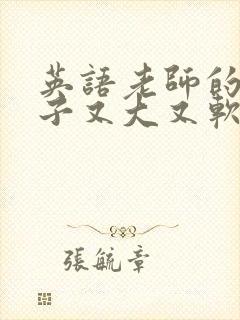 英語老師的
子又大又軟
張毓章